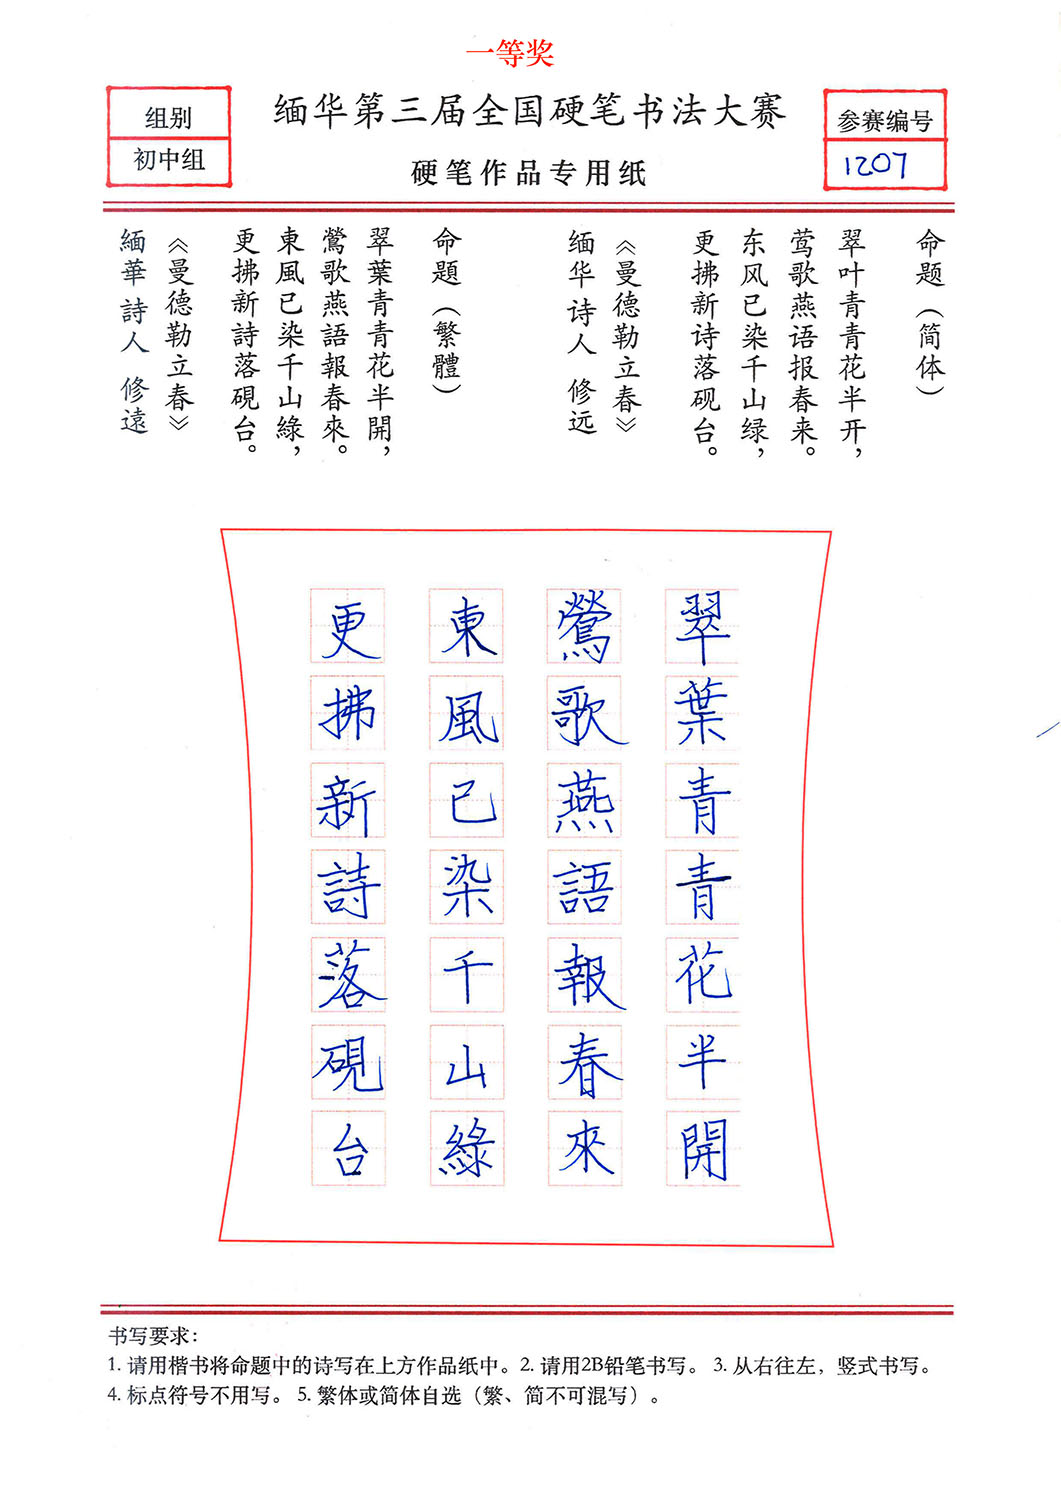 一等奖
组别
初中组
缅华第三届全国硬笔书法大赛
硬笔作品专用纸
参赛编号
1207
命题（简体）
翠叶青青花半开，
莺歌燕语报春来。
东风已染千山绿，
更拂新诗落砚台。
《曼德勒立春》
缅华诗人 修远
命題（繁體）
翠葉青青花半開，
鶯歌燕語報春來。
東風已染千山綠，
更拂新詩落硯台。
《曼德勒立春》
緬華詩人 修遠
翠葉青青花半開
鶯歌燕語報春來
東風已染千山綠
更拂新詩落硯台
书写要求：
1. 请用楷书将命题中的诗写在上方作品纸中。2. 请用2B铅笔书写。 3. 从右往左，竖式书写。
4. 标点符号不用写。 5. 繁体或简体自选（繁、简不可混写）。